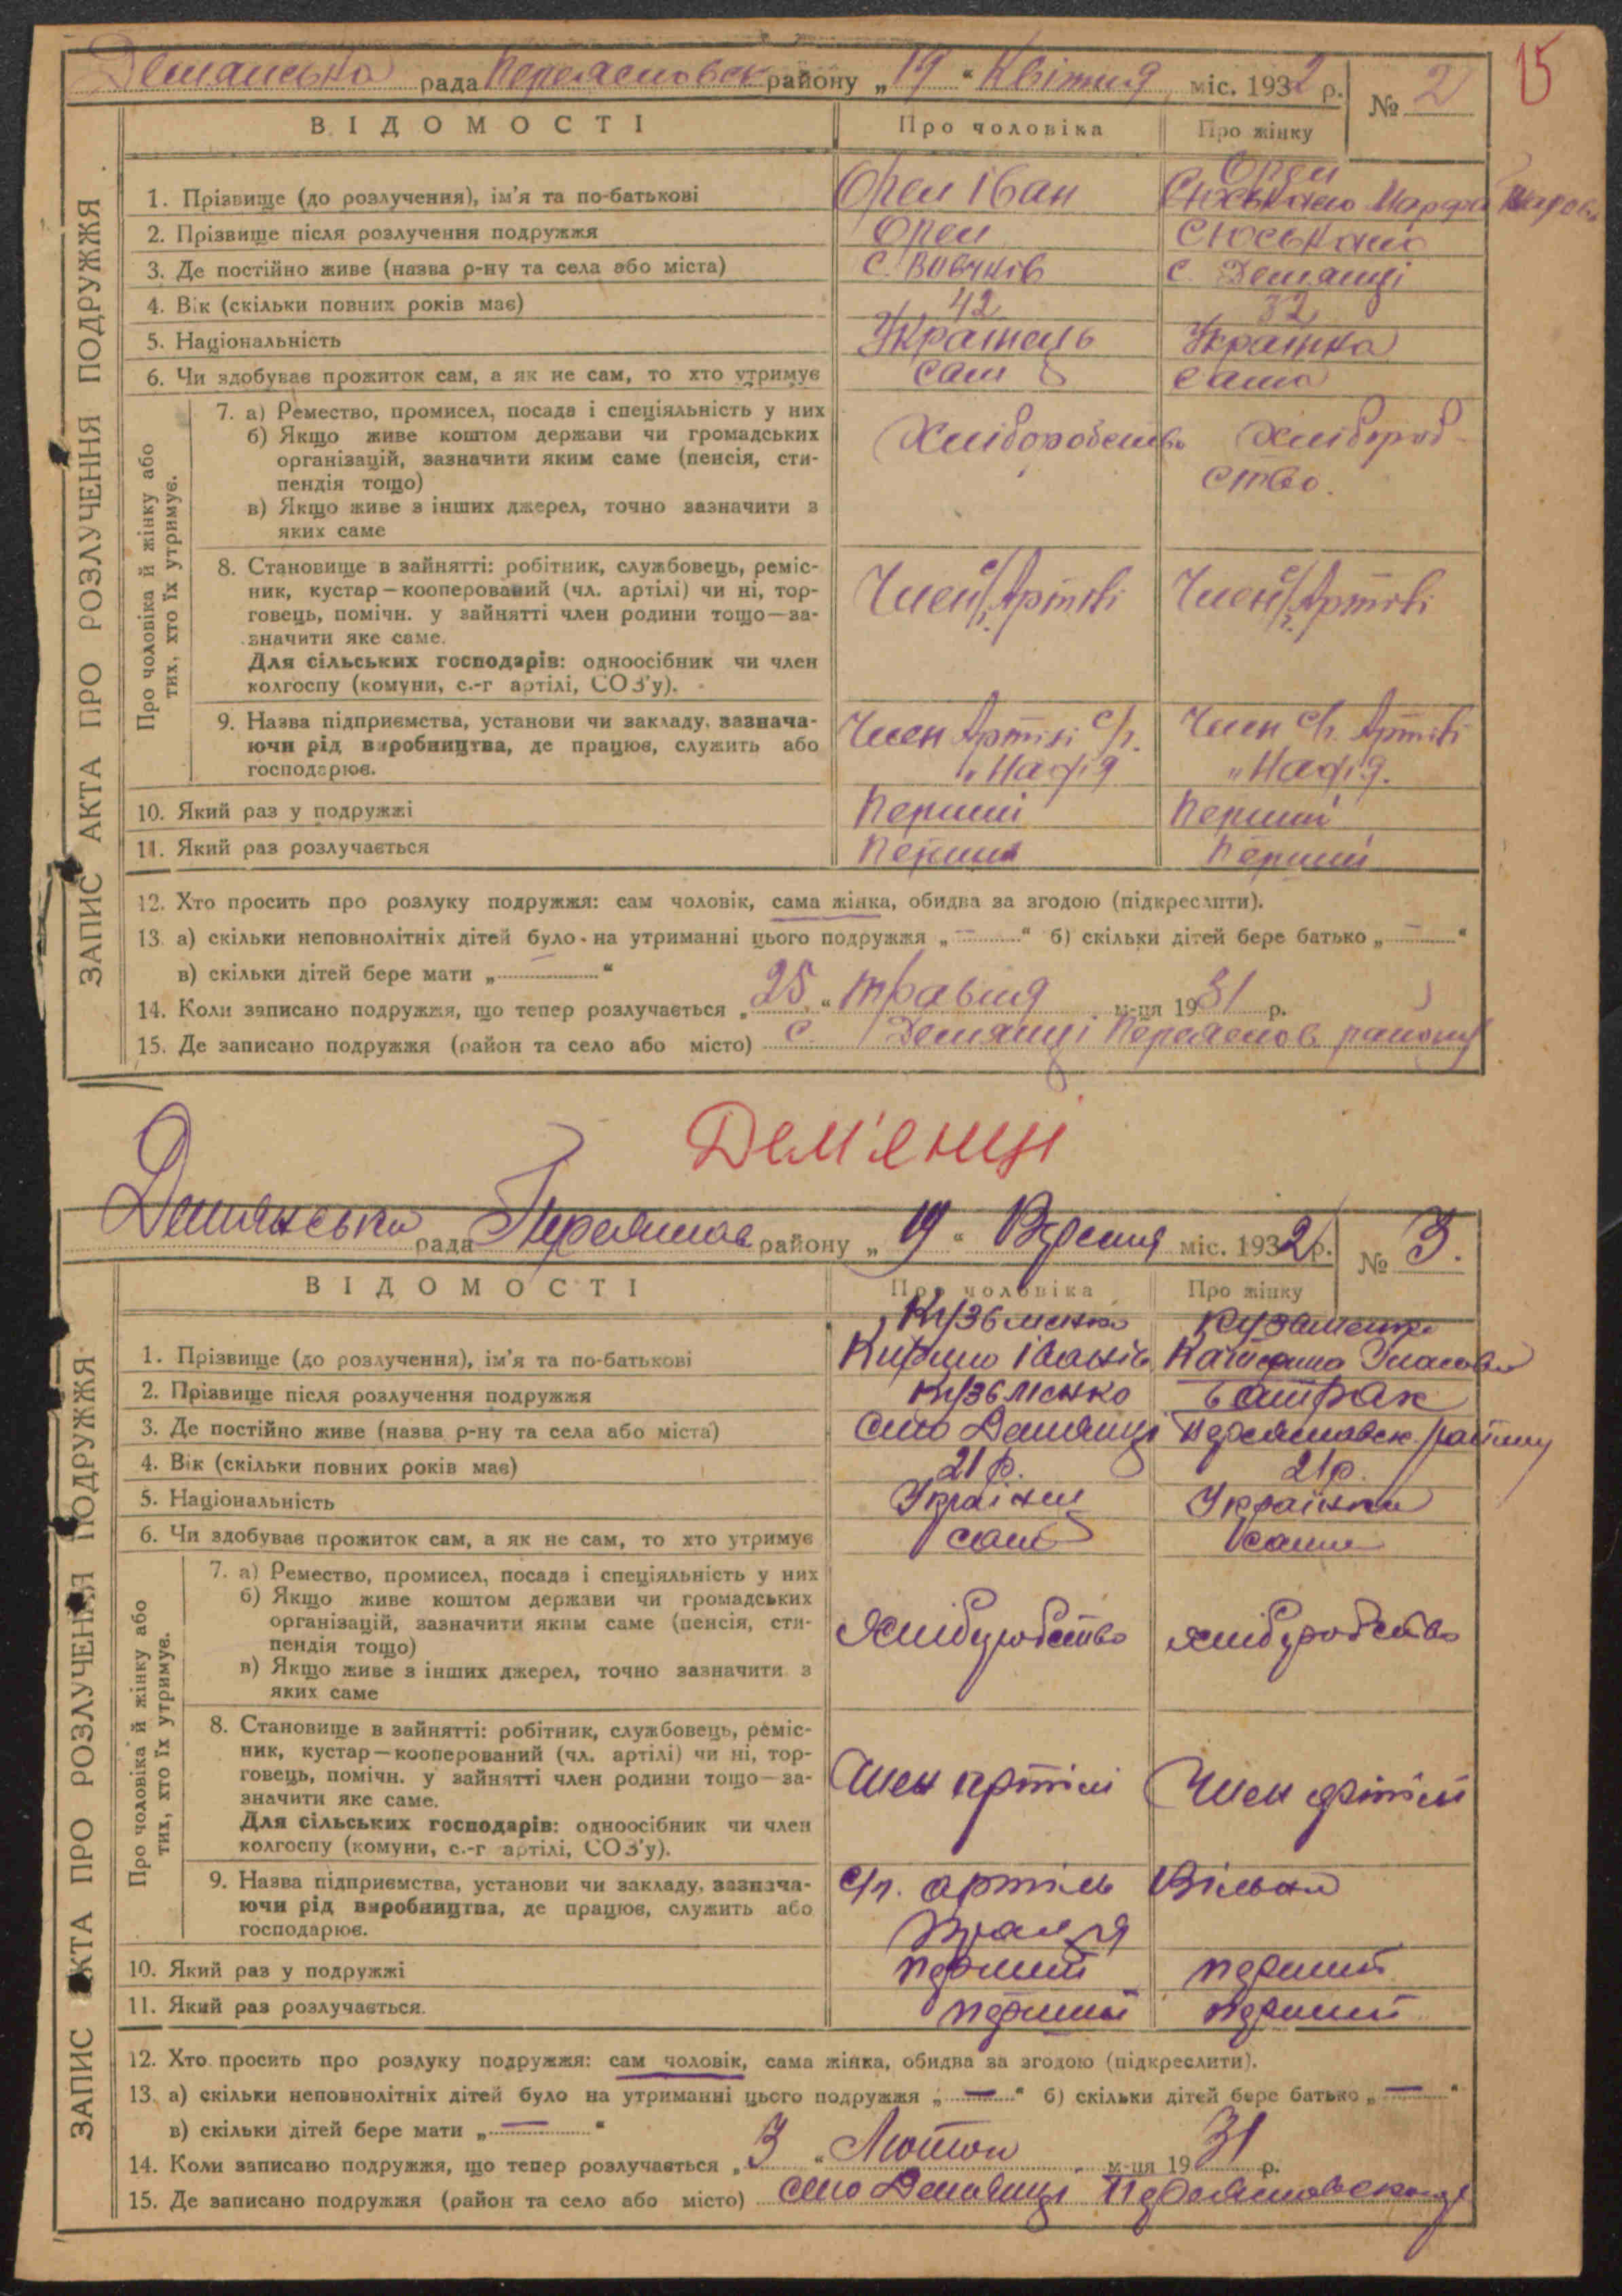 15
Демянська рада Переяславськ району „19“ Квітня міс. 1932 р. № 2
ВІДОМОСТІ Про чоловіка Про жінку
ЗАПИС АКТА ПРО РОЗЛУЧЕННЯ ПОДРУЖЖЯ
Орел
1. Прізвище (до розлучення), ім'я та по-батькові Орел Іван Марфа
2. Прізвище після розлучення подружжя Орел
3. Де постійно живе (назва р-ну та села або міста) с. Вовчків с. Демянці
4. Вік (скільки повних років має) 42 32
5. Національність Українець Українка
6. Чи здобуває прожиток сам, а як не сам, то хто утримує сам сама
Про чоловіка й жінку або
тих, хто їх утримує.
7. а) Ремество, промисел, посада і спеціяльність у них
б) Якщо живе коштом держави чи громадських Хліборобство Хлібороб-
організацій, зазначити яким саме (пенсія, сти-
пендія тощо) ство.
в) Якщо живе з інших джерел, точно зазначити з
яких саме
8. Становище в зайнятті: робітник, службовець, реміс-
ник, кустар—кооперований (чл. артілі) чи ні, тор- Член с/г. Артілі Член с/г. Артілі
говець, помічн. у зайнятті член родини тощо—за-
значити яке саме.
Для сільських господарів: одноосібник чи член
колгоспу (комуни, с.-г артілі, СОЗ'у).
9. Назва підприємства, установи чи закладу, зазнача- Член Артілі с/г. Член с/г. Артілі
ючи рід виробництва, де працює, служить або „Надія „Надія.
господарює.
10. Який раз у подружжі Перший Перший
11. Який раз розлучається Перший Перший
12. Хто просить про розлуку подружжя: сам чоловік, сама жінка, обидва за згодою (підкреслити).
13. а) скільки неповнолітніх дітей було на утриманні цього подружжя „—“ б) скільки дітей бере батько „—“
в) скільки дітей бере мати „—“
14. Коли записано подружжя, що тепер розлучається „25“ травня м-ця 1931 р.
15. Де записано подружжя (район та село або місто) с. Демянці Переяслов. району
Дем'янці
Демянська рада Переяслав району „19“ Вересня міс. 1932 р. № 3.
ВІДОМОСТІ Про чоловіка Про жінку
ЗАПИС АКТА ПРО РОЗЛУЧЕННЯ ПОДРУЖЖЯ
Кузьменко Кузьменко
1. Прізвище (до розлучення), ім'я та по-батькові Кирило Іванів Катерина
2. Прізвище після розлучення подружжя Кузьменко Батрак
3. Де постійно живе (назва р-ну та села або міста) село Демянці Переяславськ. району
4. Вік (скільки повних років має) 21 р. 21 р.
5. Національність Українка
6. Чи здобуває прожиток сам, а як не сам, то хто утримує сам сама
Про чоловіка й жінку або
тих, хто їх утримує.
7. а) Ремество, промисел, посада і спеціяльність у них
б) Якщо живе коштом держави чи громадських
організацій, зазначити яким саме (пенсія, сти- хліборобство хліборобство
пендія тощо)
в) Якщо живе з інших джерел, точно зазначити з
яких саме
8. Становище в зайнятті: робітник, службовець, реміс-
ник, кустар—кооперований (чл. артілі) чи ні, тор-
говець, помічн. у зайнятті член родини тощо—за- Член артілі Член артілі
значити яке саме.
Для сільських господарів: одноосібник чи член
колгоспу (комуни, с.-г артілі, СОЗ'у).
9. Назва підприємства, установи чи закладу, зазнача- с/г. артіль Вільна
ючи рід виробництва, де працює, служить або
господарює.
10. Який раз у подружжі перший перший
11. Який раз розлучається. перший перший
12. Хто просить про розлуку подружжя: сам чоловік, сама жінка, обидва за згодою (підкреслити).
13. а) скільки неповнолітніх дітей було на утриманні цього подружжя „—“ б) скільки дітей бере батько „—“
в) скільки дітей бере мати „—“
14. Коли записано подружжя, що тепер розлучається „3“ Лютого м-ця 1931 р.
15. Де записано подружжя (район та село або місто) село Демянці